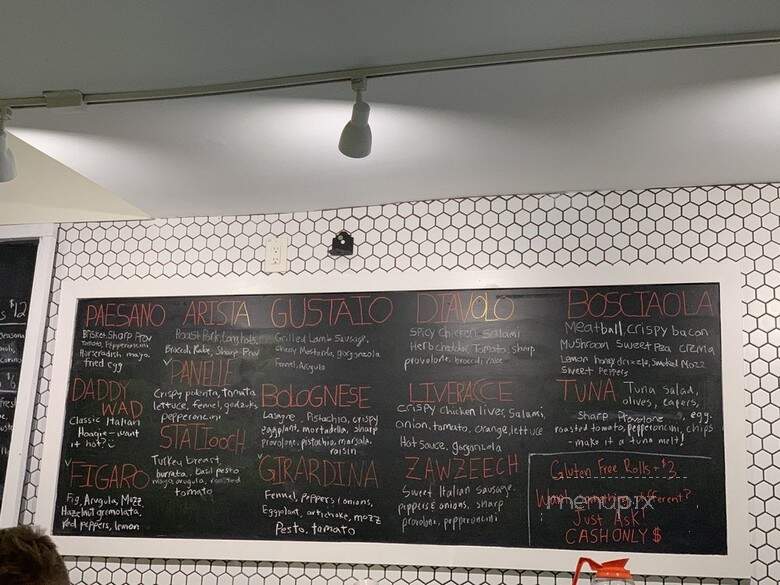 $12
PAESANO
Brisket, Sharp Prov
Tomato, Pepperoncini
Horseradish, mayo,
fried egg
ARISTA
Roast Pork, Long hots,
Broccoli Rabe, Sharp Prov
GUSTAIO
Grilled Lamb Sausage,
Cherry Mostarda, gorgonzola
Fennel, Arugula
DIAVOLO
Spicy Chicken, Salami
Herb cheddar, Tomato, sharp
provolone, broccoli rabe
BOSCIAOLA
Meatball crispy bacon
Mushroom Sweet Pea crema,
Lemon honey drizzle, Smoked Mozz
Sweet Peppers
DADDY
WAD
Classic Italian
Hoagie - want
it hot?
√PANELLE
Crispy polenta, tomato
lettuce, fennel,
pepperoncini
BOLOGNESE
Lasagne, Pistachio, crispy
eggplant, mortadella, sharp
provolone, pistachio, marsala,
raisin
LIVERACCE
Crispy chicken liver, Salami,
onion, tomato, orange, lettuce
Hot sauce, gorgonzola
TUNA Tuna salad,
olives, capers,
sharp Provolone, egg,
roasted tomato, pepperoncini, chips
- make it a tuna melt!
STATIOOCH
Turkey breast,
burrata, basil pesto
mayo, arugula, roasted
tomato
√FIGARO
Fig, Arugula, Mozz
Hazelnut gremolata,
red peppers, lemon
√GIRARDINA
Fennel, Peppers & onions,
Eggplant, artichoke, mozz
Pesto, tomato
ZAWZEECH
Sweet Italian sausage,
peppers & onions, sharp
provolone, pepperoncini
Gluten Free Rolls + $3
Want something different?
Just Ask!
CASH ONLY $
menupix